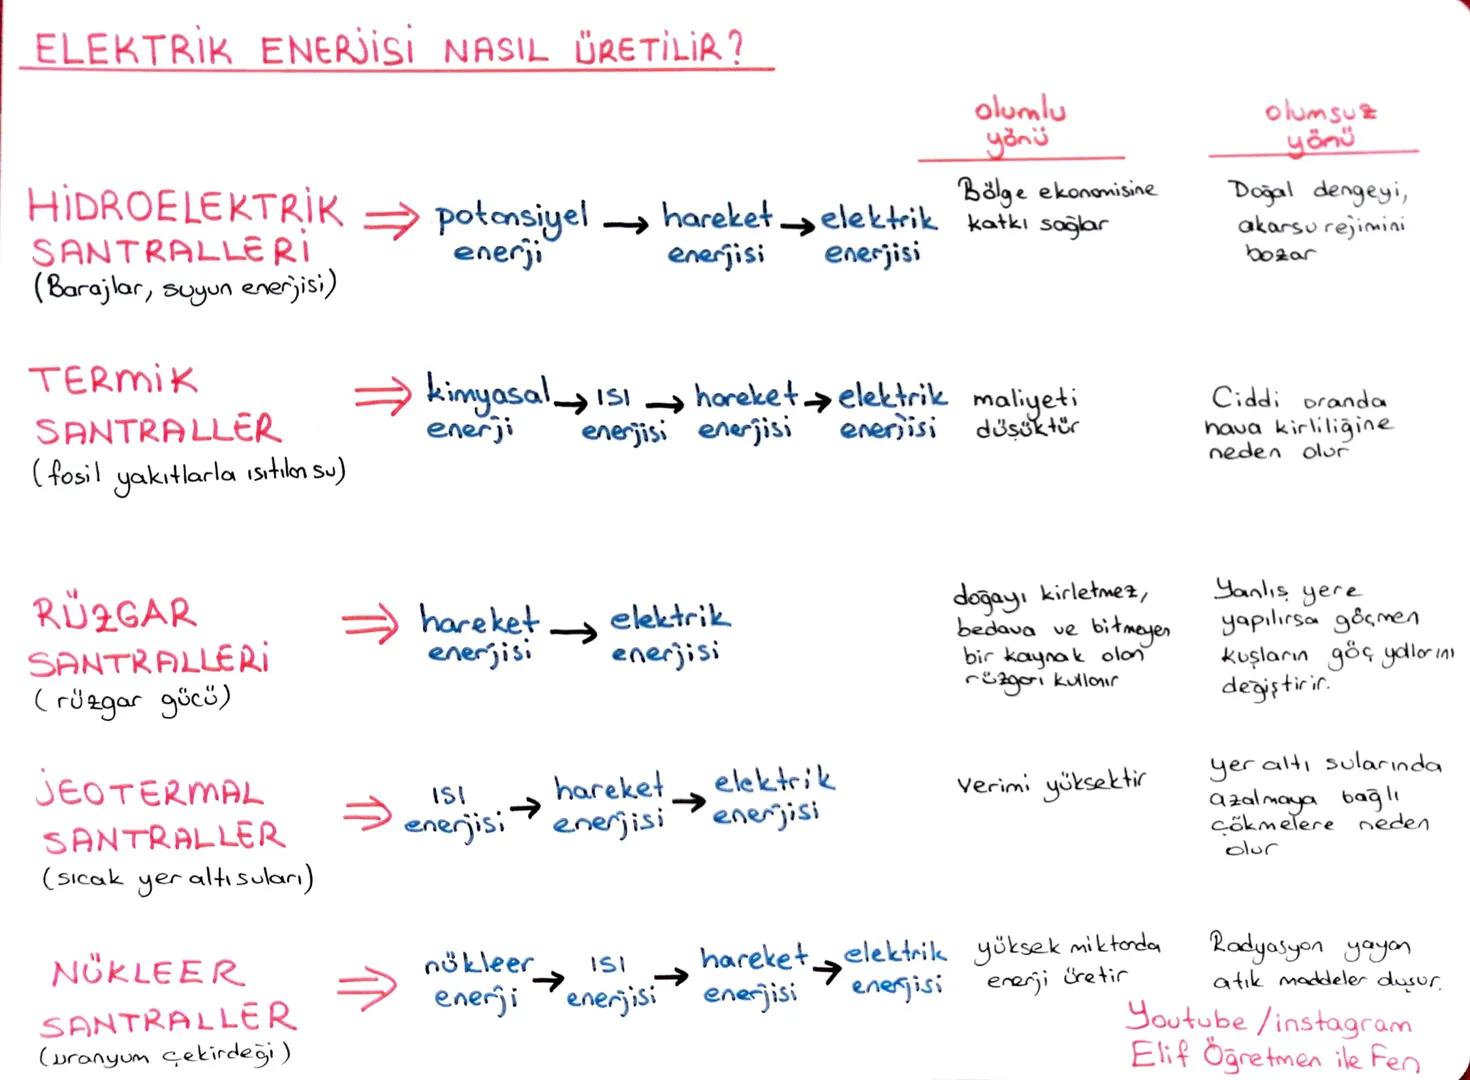 ELEKTRİK ENERJİSİ NASIL ÜRETİLİR?
olumlu
yönü
olumsuz
yönü
HİDROELEKTRİK
SANTRALLERİ
(Barajlar, suyun enerjisi)
⇒ potansiyel → hareket → elektrik
enerji enerjisi enerjisi
Bölge ekonomisine
katkı sağlar
Doğal dengeyi,
akarsu rejimini
bozar
TERMİK
SANTRALLER
(fosil yakıtlarla ısıtılan su)
⇒ kimyasal → ISI → hareket → elektrik
enerji enerjisi enerjisi enerjisi
maliyeti
düşüktür
Ciddi oranda
hava kirliliğine
neden olur
RÜZGAR
SANTRALLERİ
(rüzgar gücü)
⇒ hareket → elektrik
enerjisi enerjisi
doğayı kirletmez,
bedava ve bitmeyen
bir kaynak olan
rüzgarı kullanır
Yanlış yere
yapılırsa göçmen
kuşların göç yollarını
değiştirir.
JEOTERMAL
SANTRALLER
(sıcak yer altı suları)
⇒ ISI → hareket → elektrik
enerjisi enerjisi enerjisi
Verimi yüksektir
yer altı sularında
azalmaya bağlı
çökmelere neden
olur
NÜKLEER
SANTRALLER
(uranyum çekirdeği)
⇒ nükleer → ISI → hareket → elektrik
enerji enerjisi enerjisi enerjisi
yüksek miktarda
enerji üretir
Radyasyon yayan
atık maddeler oluşur.
Youtube / instagram
Elif Öğretmen ile Fen